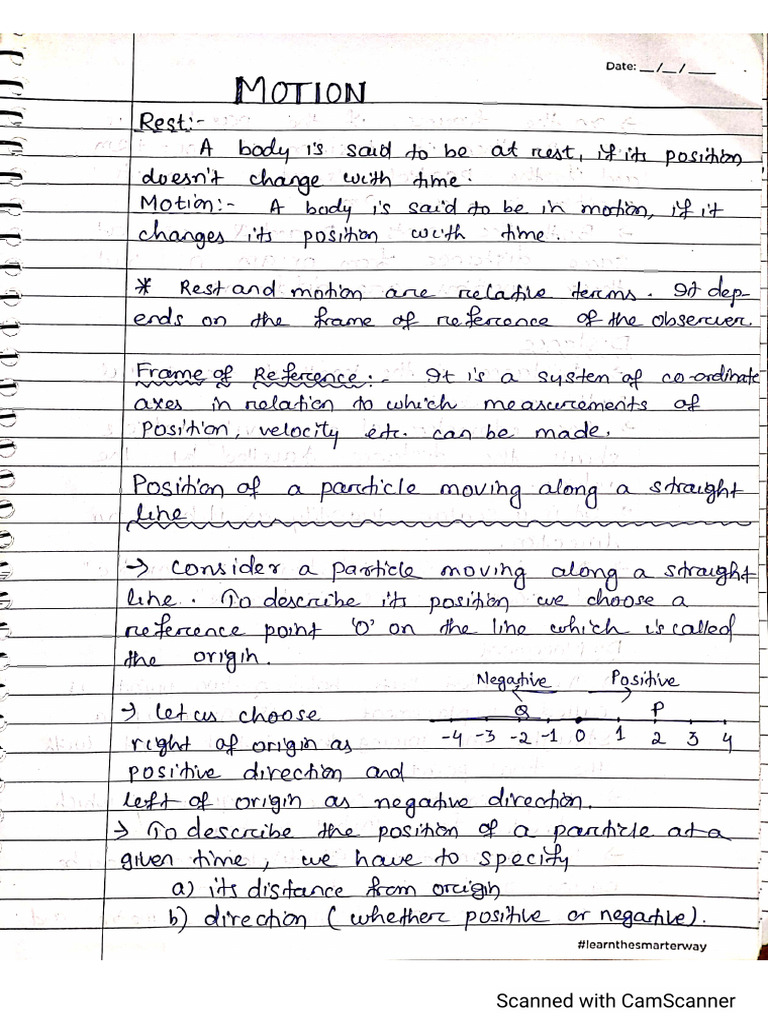 Date: __/__/____
MOTION
Rest:-
A body is said to be at rest, if its position
doesn't change with time.
Motion:- A body is said to be in motion, if it
changes its position with time.
* Rest and motion are relative terms. It dep-
ends on the frame of reference of the observer.
Frame of Reference:- It is a system of co-ordinate
axes in relation to which measurements of
Position, velocity etc. can be made.
Position of a particle moving along a straight
line
→ Consider a particle moving along a straight
line. To describe its position we choose a
reference point 'O' on the line which is called
the origin.
Negative Positive
→ Let us choose
Q P
-4 -3 -2 -1 0 1 2 3 4
right of origin as
positive direction and
left of origin as negative direction.
→ To describe the position of a particle at a
given time, we have to specify
a) its distance from origin
b) direction (whether positive or negative).
#learnthesmarterway
Scanned with CamScanner